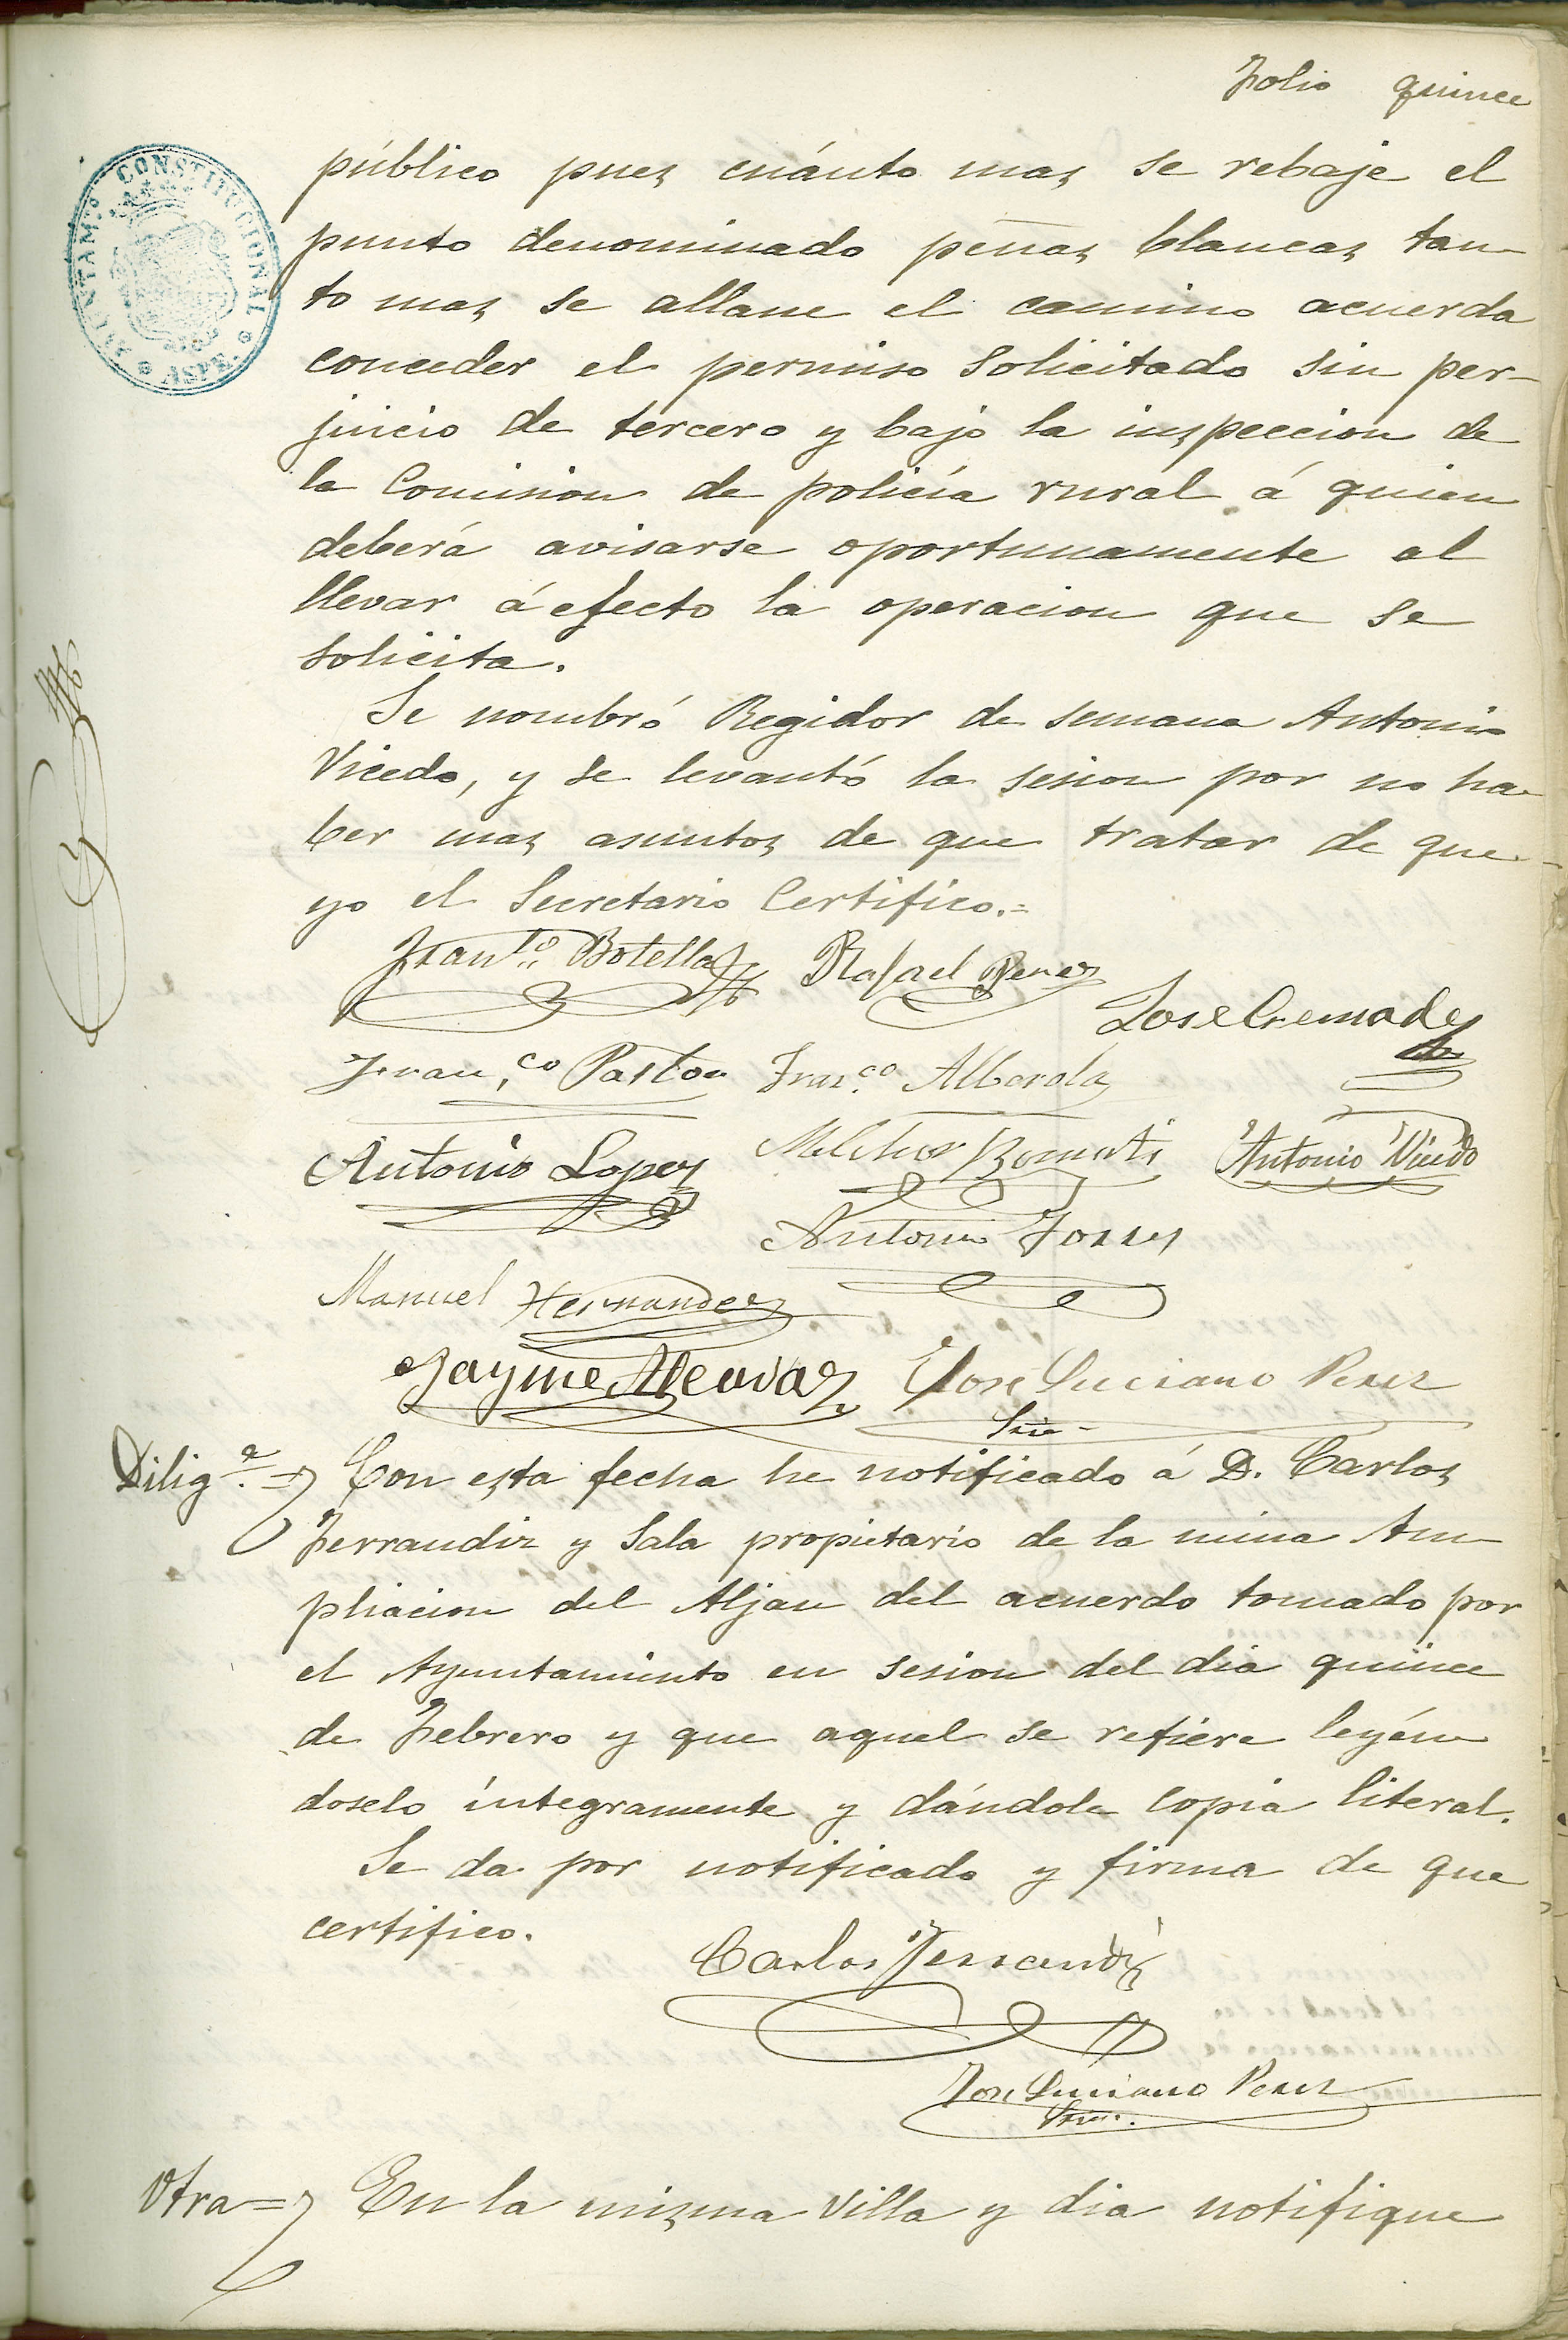 Folio quince
AYUNTAM.º CONSTITUCIONAL * ASPE *
público pues cuánto mas se rebaje el
punto denominado peñas blancas tan-
to mas se allane el camino acuerda
conceder el permiso solicitado sin per-
juicio de tercero y bajo la inspeccion de
la Comision de policía rural á quien
deberá avisarse oportunamente al
llevar á efecto la operacion que se
solicita.
Se nombró Regidor de semana Antonio
Vicedo, y se levantó la sesion por no ha-
ber mas asuntos de que tratar de que
yo el Secretario Certifico.=
Fran.co Botella Rafael Perez
Jose Cremades
Fran.co Pastor Fran.co Alberola
Antonio Lopez Melchor Antonio Vicedo
Antonio Torres
Manuel Hernandez
Jayme Alcaraz Jose Luciano Perez
Srio
Dilig.a = Con esta fecha he notificado á D. Carlos
Ferrandiz y Sala propietario de la mina Am-
pliacion del Aljau del acuerdo tomado por
el Ayuntamiento en sesion del dia quince
de Febrero y que aquel se refiere leyén
doselo íntegramente y dándole copia literal.
Se da por notificado y firma de que
certifico.
Carlos Ferrandiz
Jose Luciano Perez
Srio.
Otra = En la misma Villa y dia notifique